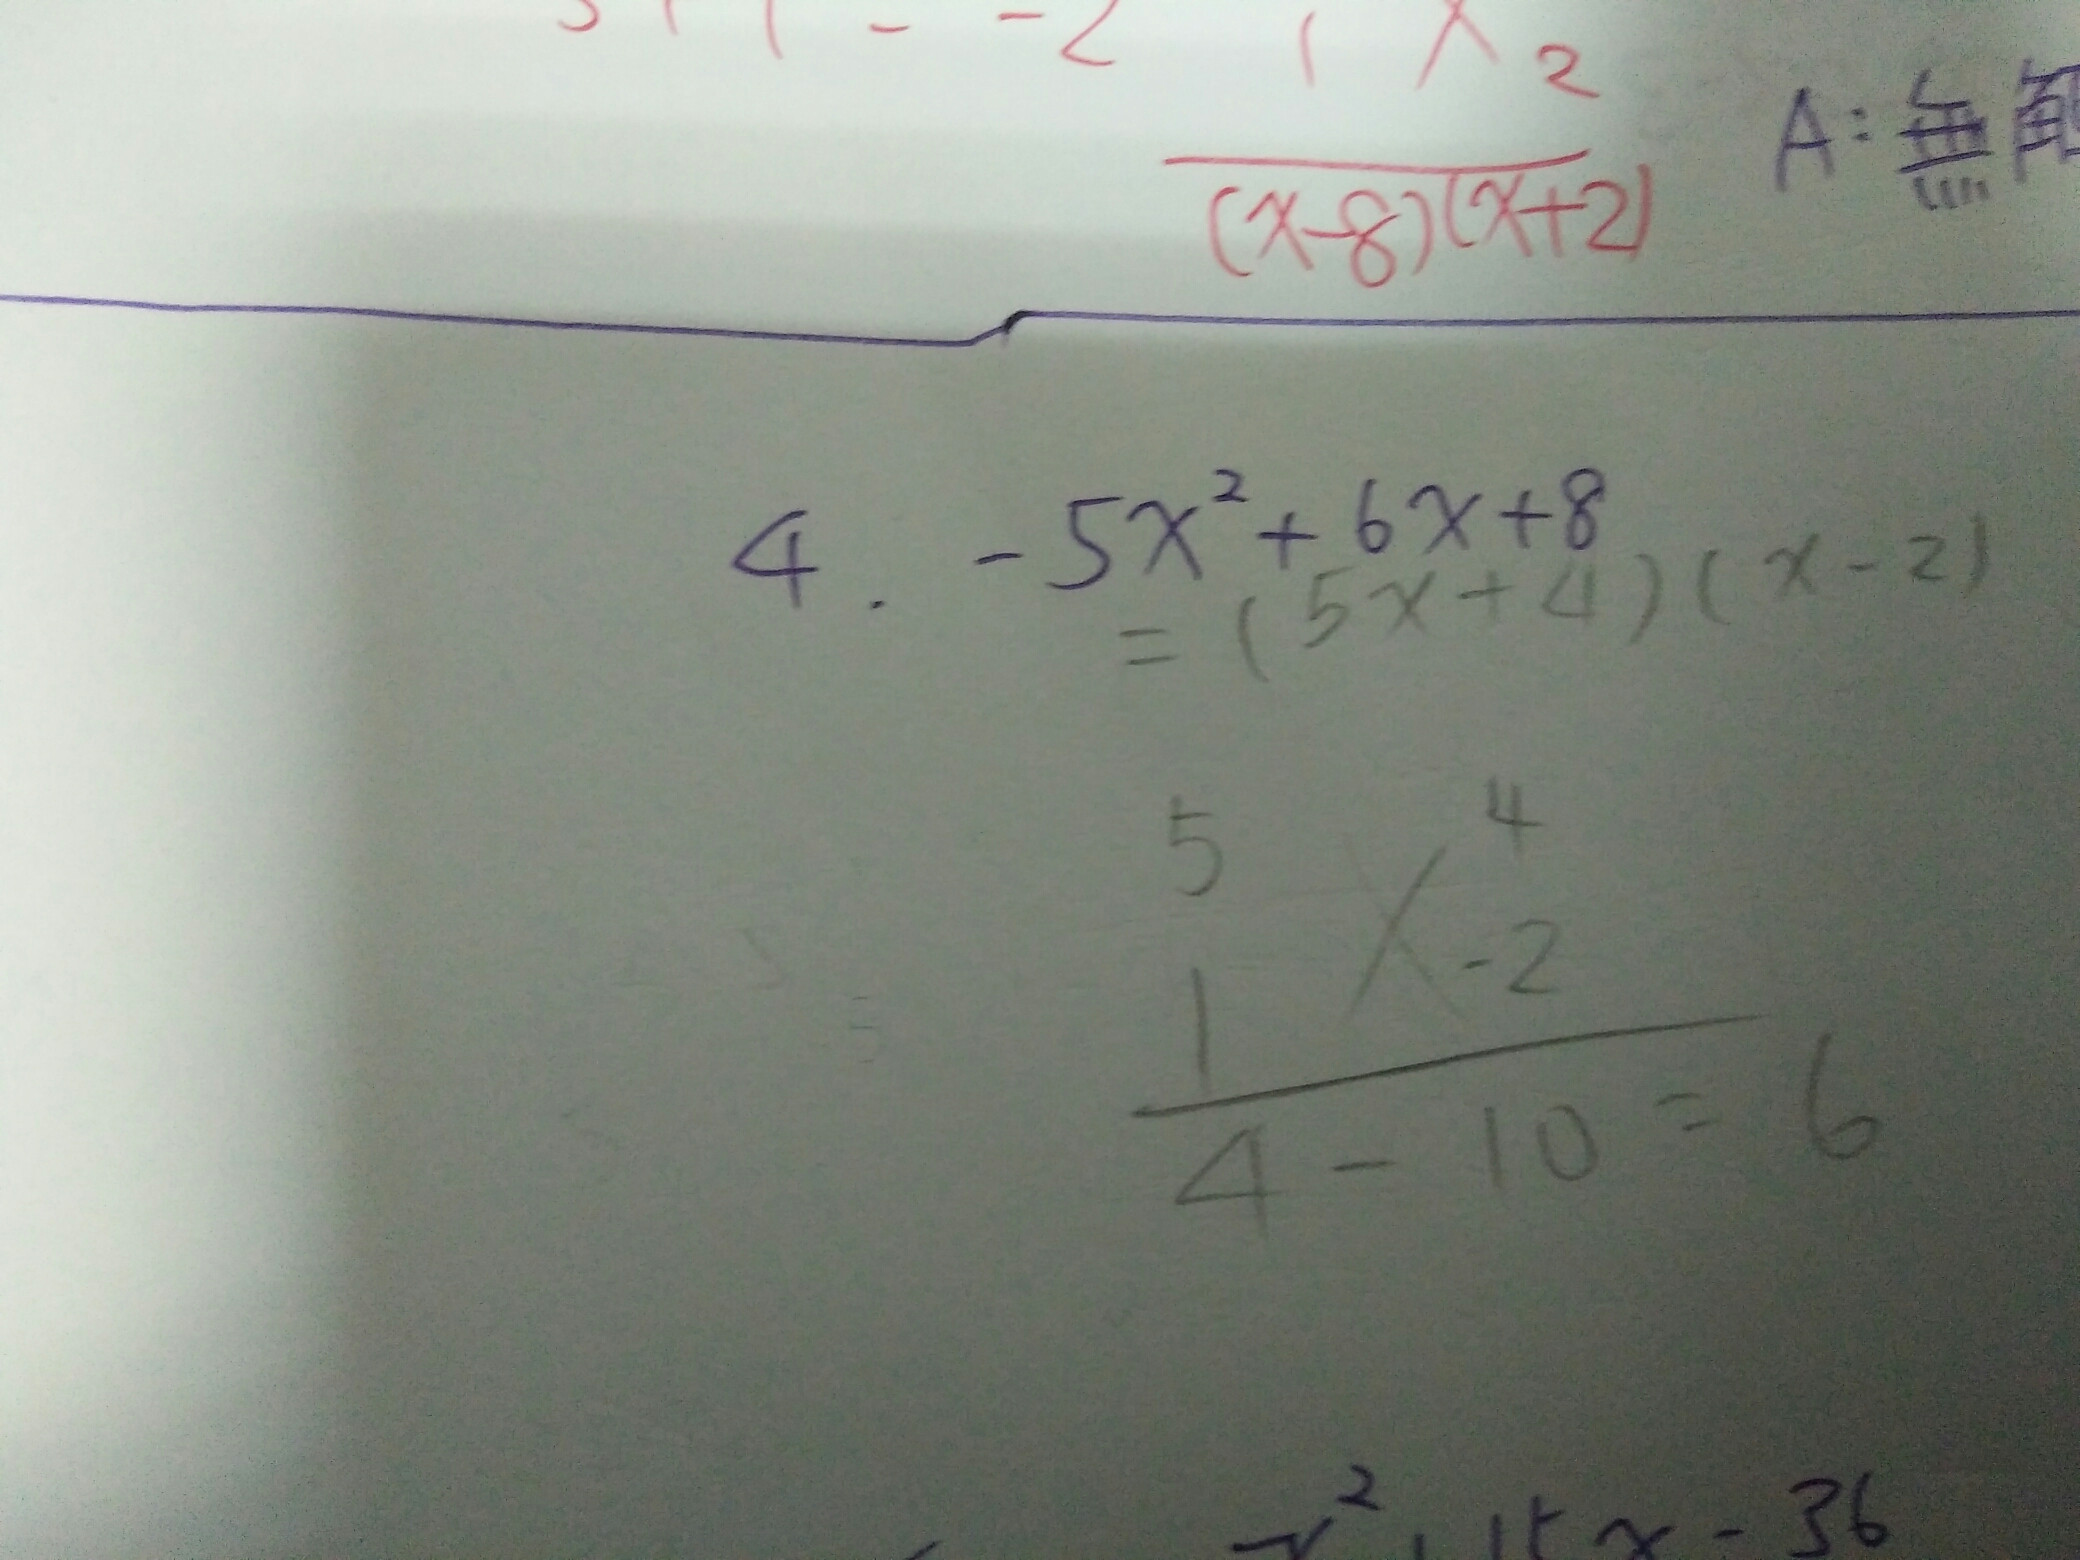 -2 1 X 2
(x-8)(x+2)
A:無解
4. -5x²+6x+8
=(5x+4)(x-2)
5 4
1 X -2
4-10=6
x²+15x-36